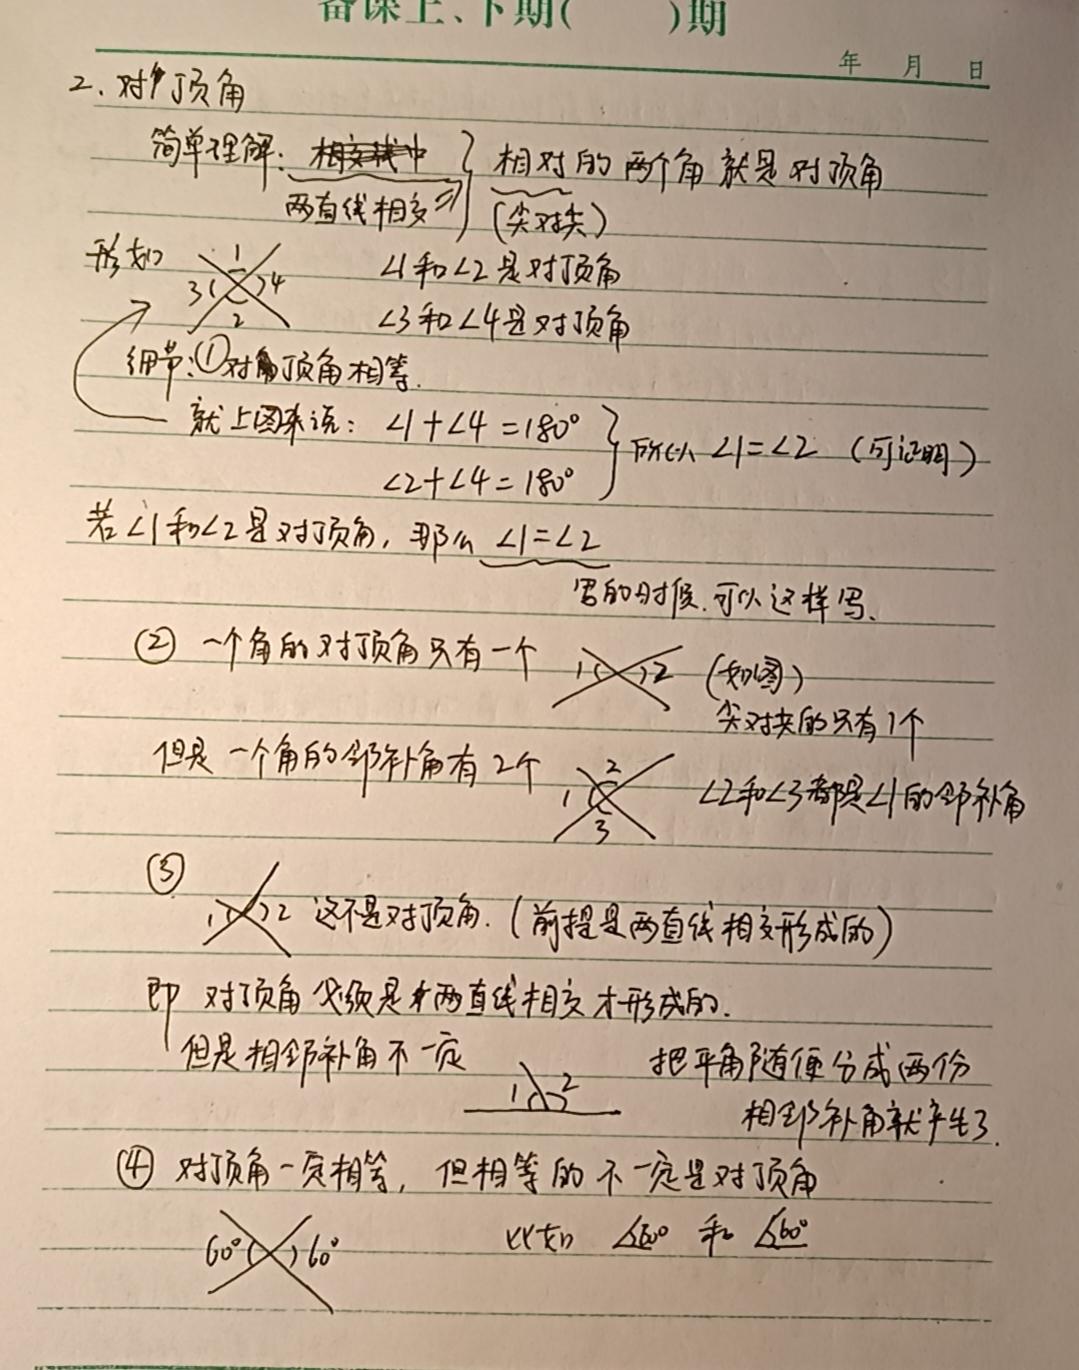 备课上、下期(    )期
年 月 日
2、对顶角
简单理解: 相交线中 } 相对的两个角就是对顶角
两直线相交 (尖对尖)
形如 1 3 4 2 ∠1和∠2是对顶角
∠3和∠4是对顶角
细节:①对顶角相等.
就上图来说: ∠1+∠4=180° } 所以 ∠1=∠2 (可证明)
∠2+∠4=180°
若∠1和∠2是对顶角, 那么 ∠1=∠2
写的时候.可以这样写、
② 一个角的对顶角只有一个 1 2 (如图)
尖对尖的只有1个
但是一个角的邻补角有2个 1 2 3 ∠2和∠3都是∠1的邻补角
③
1 2 这不是对顶角.(前提是两直线相交形成的)
即 对顶角必须是两直线相交才形成的.
但是相邻补角不一定 1 2 把平角随便分成两份
相邻补角就产生了.
④ 对顶角一定相等, 但相等的不一定是对顶角
60° 60° 比如 60° 和 60°